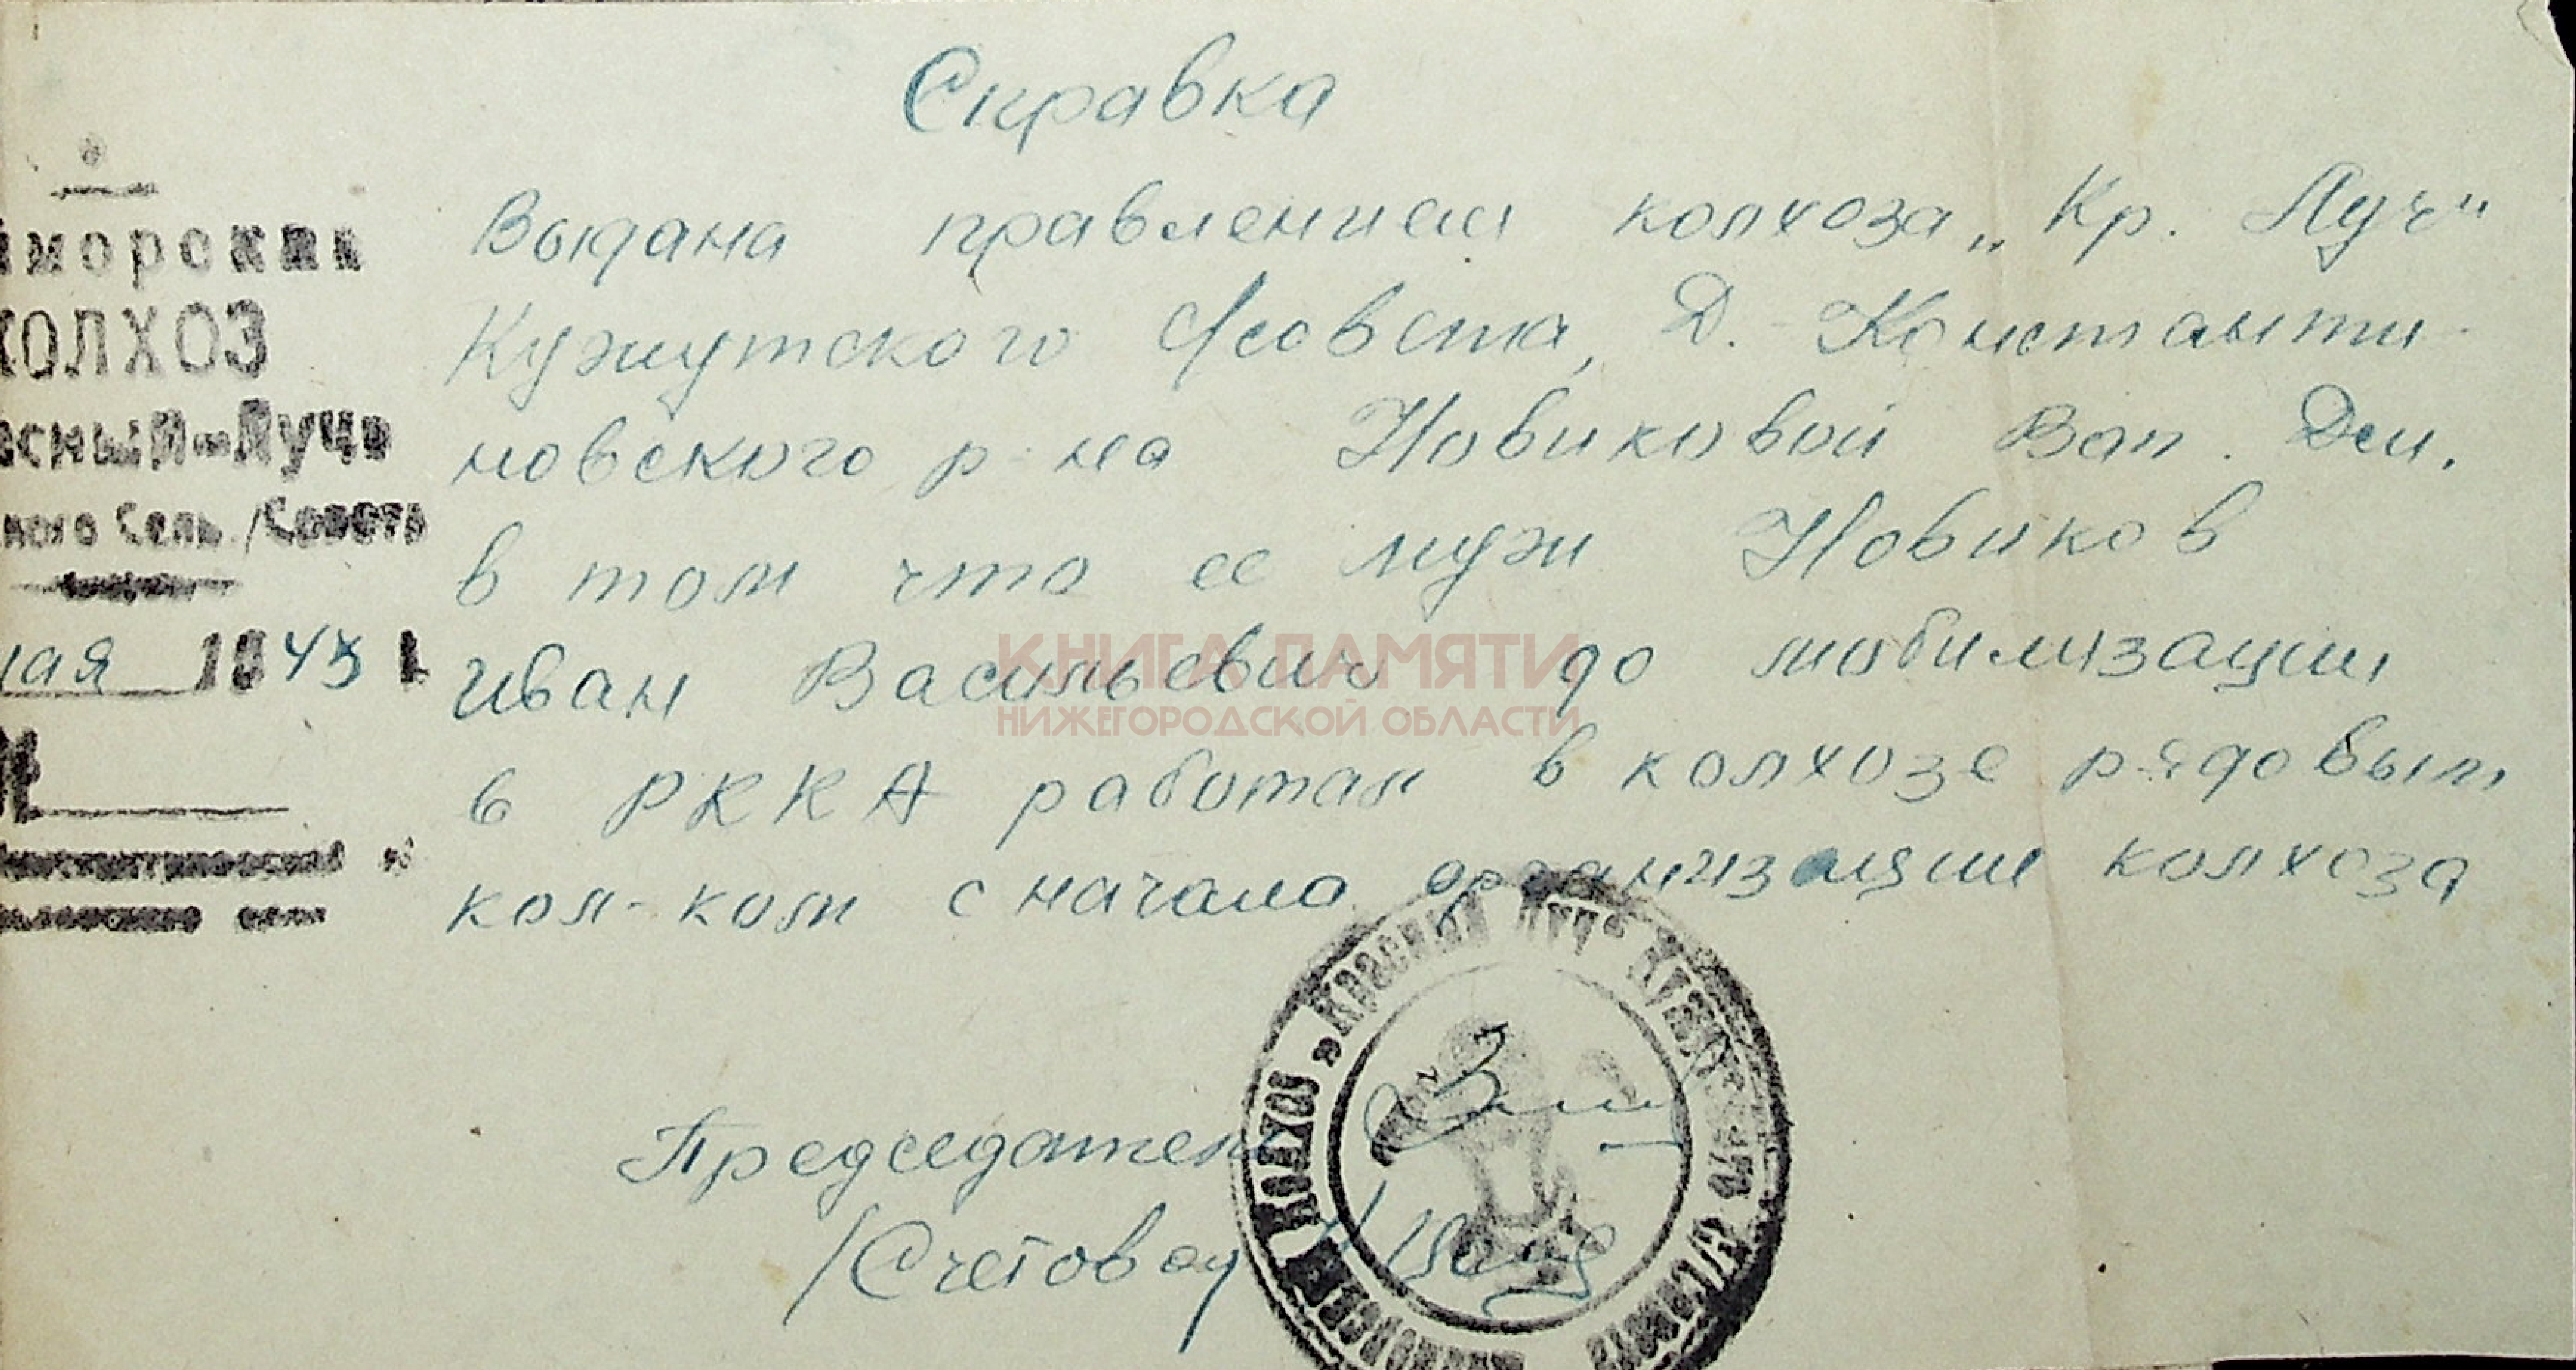 Справка
Выдана правлением колхоза „Кр. Луч"
Кужутского с/совета, Д. Константи-
новского р-на Новиковой Вап. Дем.
в том что ее муж Новиков
Иван Васильевич до мобилизации
в РККА работал в колхозе рядовым
кол-ком с начала организации колхоза
Председатель
/Счетовод
морский
КОЛХОЗ
сный-Лучь
ного Сель/Совета
мая 1945 г.
КНИГА ПАМЯТИ
НИЖЕГОРОДСКОЙ ОБЛАСТИ
КОЛХОЗ „КРАСНЫЙ ЛУЧ"